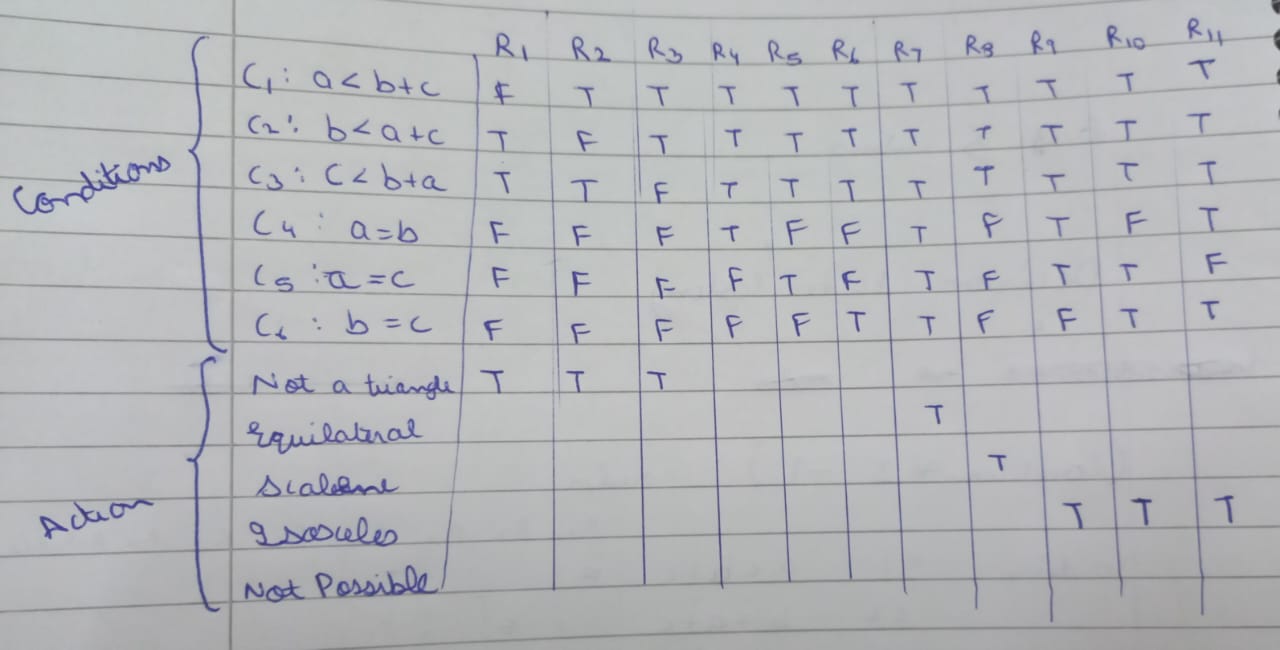 R1 R2 R3 R4 R5 R6 R7 R8 R9 R10 R11
Conditions
C1: a<b+c F T T T T T T T T T T
C2: b<a+c T F T T T T T T T T T
C3: C<b+a T T F T T T T T T T T
C4: a=b F F F T F F T F T F T
C5: a=c F F F F T F T F T T F
C6: b=c F F F F F T T F F T T
Action
Not a triangle T T T
Equilateral T
Scalene T
Isosceles T T T
Not Possible